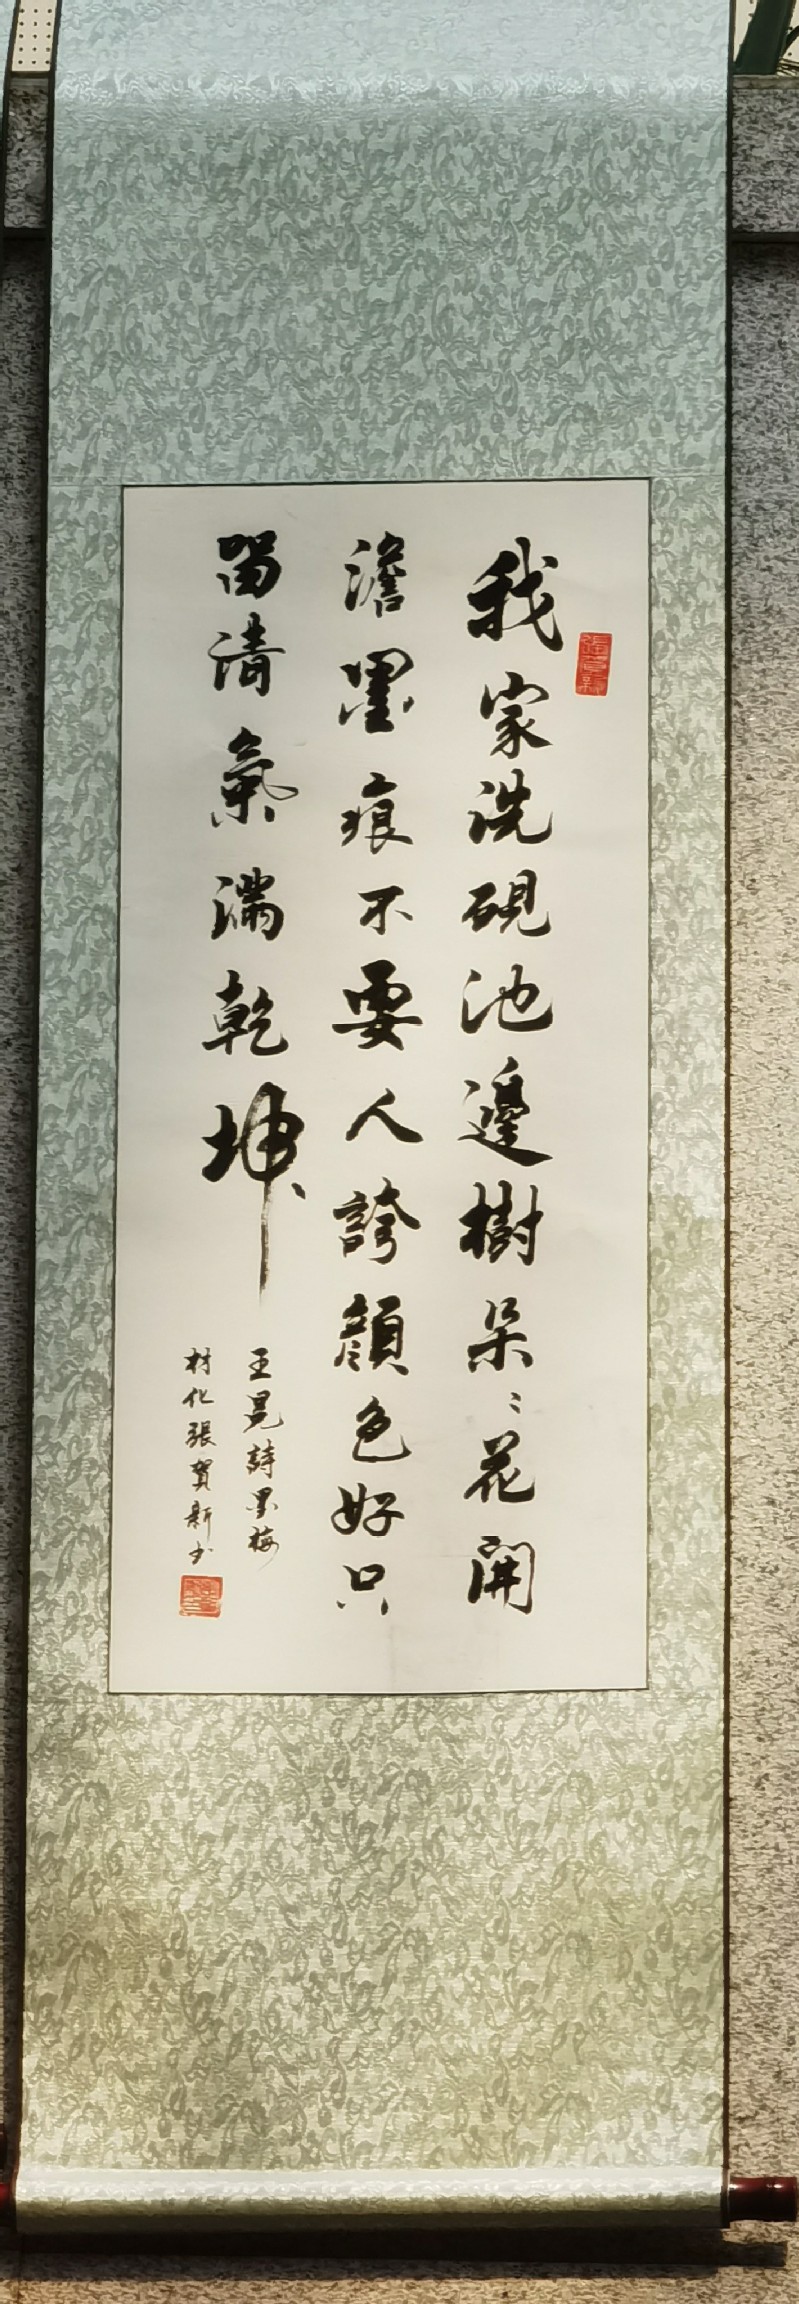 我家洗硯池邊樹朵〻花開
澹墨痕不要人誇顏色好只
留清氣滿乾坤
王冕詩墨梅
材化張賀新书
張賀新